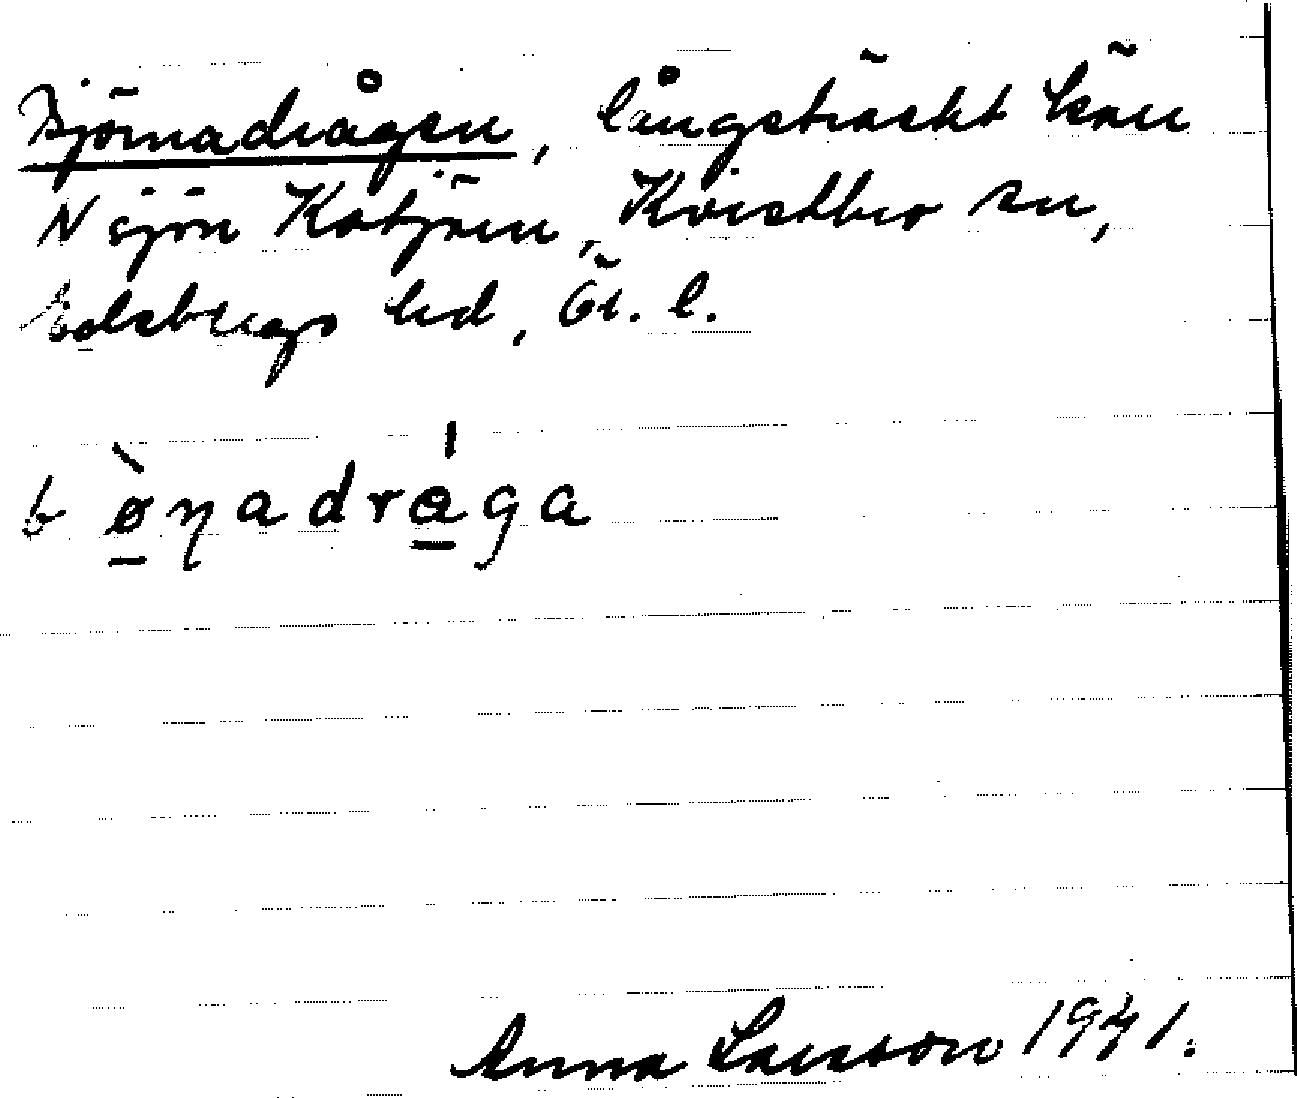 Björnadrågen, långsträckt kärr
N sjön Kotjärn, Kvistbro sn,
Edsbergs hd, Ör. l.
bø̀ɳadrága
Anna Larsson 1941.